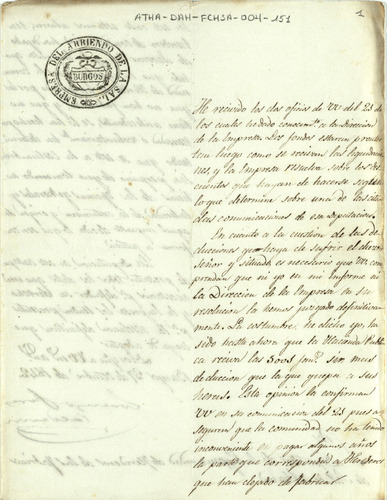 ATHA-DAH-FCHSA-004-151
1
EMPRESA DEL ARRIENDO DE LA SAL.
BURGOS
He recivido los dos oficios de VV del 23 de
los cuales he dado conocim.to a la Direccion
de la Empresa. Los fondos estaran prontos
tan luego como se recivan las liquidacio
nes, y la Empresa resuelva sobre los des
cuentos que hayan de hacerse segun
lo que determine sobre una de las cita
das comunicaciones de esa Diputacion.
En cuanto a la cuestion de las de
ducciones que haya de sufrir el dro de
Señor y situado es necesario que VV com
prendan que ni yo en mi Informe ni
la Direccion de la Empresa en su
resolucion la hemos juzgado definitiva
mente. La costumbre, he dicho yo, ha
sido hasta ahora que la Hacienda Publi
ca reciva las 5001 fan.s sin mas
deduccion que la que quepa a sus
heras. Esta opinion la confirman
VV en su comunicacion del 23 pues a
seguran que la comunidad no ha tenido
inconveniente en pagar algunos años
la parte que correspondia a Herederos
que han dejado de fabricar.